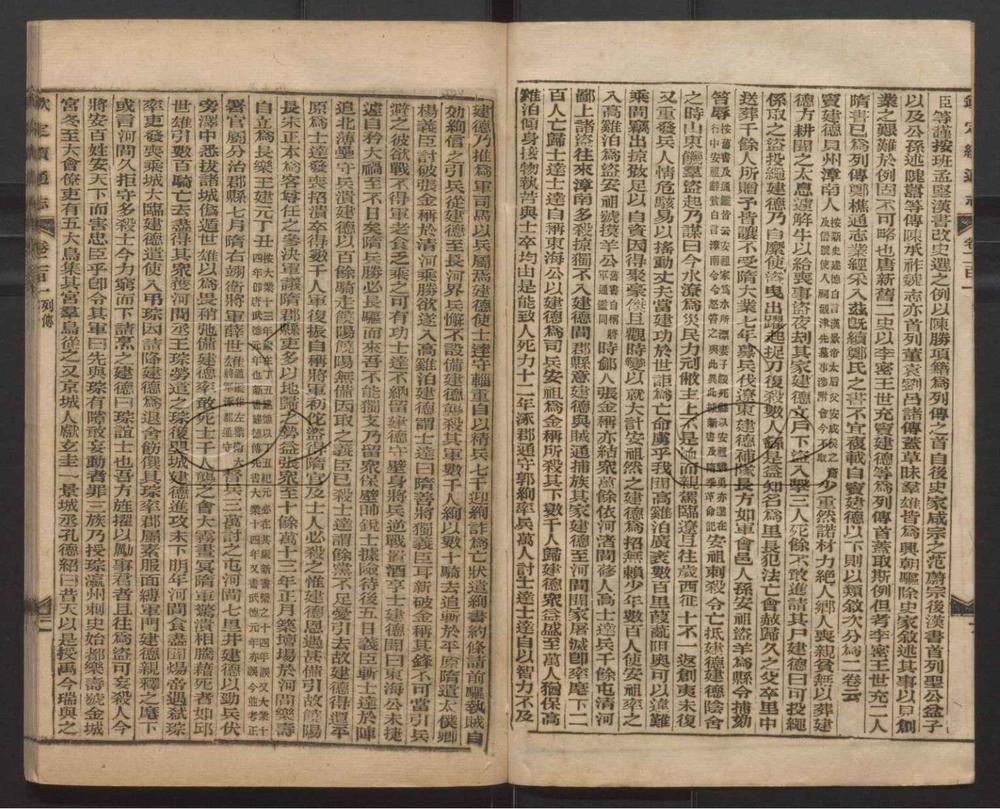 臣等謹按班孟堅漢書改史遷之例以陳勝項籍爲列傳之首自後史家咸宗之范蔚宗後漢書首列聖公盆子
以及公孫述隗囂等傳陳承祚魏志亦首列董袁劉呂諸傳蓋草昧羣雄皆爲興朝驅除史家敘述其事以見創
業之艱難於例固不可略也唐新舊二史以李密王世充竇建德等爲列傳首蓋取斯例但考李密王世充二人
隋書已爲列傳鄭樵通志業經采入茲旣續鄭氏之書不宜複載自竇建德以下則以類敘次分爲二卷云
竇建德貝州漳南人
少重然諾材力絕人鄉人喪親貧無以葬建
德方耕聞之太息遽解牛以給喪事盜夜劫其家建德立戶下盜入擊三人死餘不敢進請其尸建德曰可投繩
係取之盜投繩建德乃自縻使盜曳出躍起捉刀復殺數人繇是益知名爲里長犯法亡會赦歸久之父卒里中
送葬千餘人所贈予皆讓不受隋大業七年募兵伐遼東建德補隊長方如軍會邑人孫安祖盜羊爲縣令捕劾
笞辱
安祖刺殺令亡抵建德建德陰舍
之時山東饑羣盜起乃謀曰今水潦爲災民力刓敝主上不是恤而親駕臨遼且往歲西征十不一返創夷未復
又重發兵人情危駭易以搖動丈夫當建功於世詎爲亡命虜乎我聞高雞泊廣袤數百里葭薍阻奧可以違難
乘間竊出掠取足以自資因得聚豪傑且觀時變以就大計安祖然之建德爲招無賴少年數百人使安祖率之
入高雞泊爲盜安祖號摸羊公
時鄃人張金稱亦結衆萬餘依河渚間蓨人高士達兵千餘屯清河
鄙上諸盜往來漳南多殺掠獨不入建德閭郡縣意建德與賊通捕族其家建德至河間聞家屠滅卽率麾下二
百人亡歸士達士達自稱東海公以建德爲司兵安祖俄爲金稱所殺其下數千人歸建德衆益盛至萬人猶保高
雞泊傾身接物執苦與士卒均由是能致人死力十二年涿郡通守郭絢率兵萬人討士達士達自以智力不及
建德乃推爲軍司馬以兵屬焉建德使士達守輜重自以精兵七千迎絢詐爲亡狀遣絢書約條請前驅執賊自
効絢信之引兵從建德至長河界兵懈不設備建德襲殺其軍數千人絢以數十騎去追斬於平原隋遣太僕卿
楊義臣討破張金稱於清河乘勝欲遂入高雞泊建德謂士達曰隋善將獨義臣耳新破金稱其鋒不可當引兵
避之彼欲戰不得軍老食乏乘之可有功士達不納留建德守壁身將兵逆戰置酒享士建德聞曰東海公未捷
遽自矜大禍至不日矣隋兵勝必長驅而來吾不能獨支乃留衆保壁帥銳士據險待後五日義臣斬士達於陣
追北薄壘守兵潰建德以百餘騎走饒陽饒陽無備因取之義臣已殺士達謂餘黨不足憂引去故建德得還平
原爲士達發喪招潰卒得數千人軍復振自稱將軍初佗盜得隋官及士人必殺之惟建德恩遇甚備引故饒陽
長宋正本爲客尊任之參決軍議隋郡縣吏多以地歸之勢益張衆至十餘萬十三年正月築壇場於河間樂壽
自立爲長樂王建元丁丑
署官屬分治郡縣七月隋右翊衛將軍薛世雄
督兵三萬討之屯河間七里井建德以勁兵伏
旁澤中悉拔諸城僞遁世雄以爲畏稍弛備建德率敢死士千人襲之會大霧晝冥隋軍驚潰相騰藉死者如邱
世雄引數百騎亡去盡得其衆獲河間丞王琮勞遣之琮復嬰城建德進攻未下明年河間食盡聞煬帝遇弑琮
率吏發喪乘城大臨建德遣使入弔琮因請降建德爲退舍飭饌其琮率郡屬素服面縛軍門建德親釋之麾下
或言河間久拒守多殺士今力窮而下請烹之建德曰琮誼士也吾方旌擢以勵事君者且往爲盜可妄殺人今
將安百姓安天下而害忠臣乎卽令其軍曰先與琮有隙敢妄動者罪三族乃授琮瀛州刺史始都樂壽號金城
宮冬至大會僚吏有五大鳥集其宮羣鳥從之又京城人獻玄圭一景城丞孔德紹曰昔天以是授禹今瑞與之